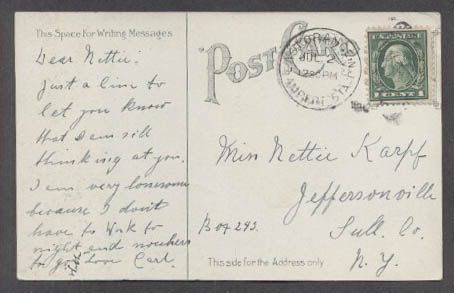 This Space For Writing Messages
Dear Nettie:
Just a line to
let you know
that I am still
thinking at you.
I am very lonesome
because I don't
have to Work to
night and nowhere
to go. Love Carl.
POST CARD
JUL 2
1230 PM
N.Y.
STA.
U.S. POSTAGE
1 CENT 1
Miss Nettie Karpf
Jeffersonville
Box 293.
Sull. Co.
N.Y.
This side for the Address only